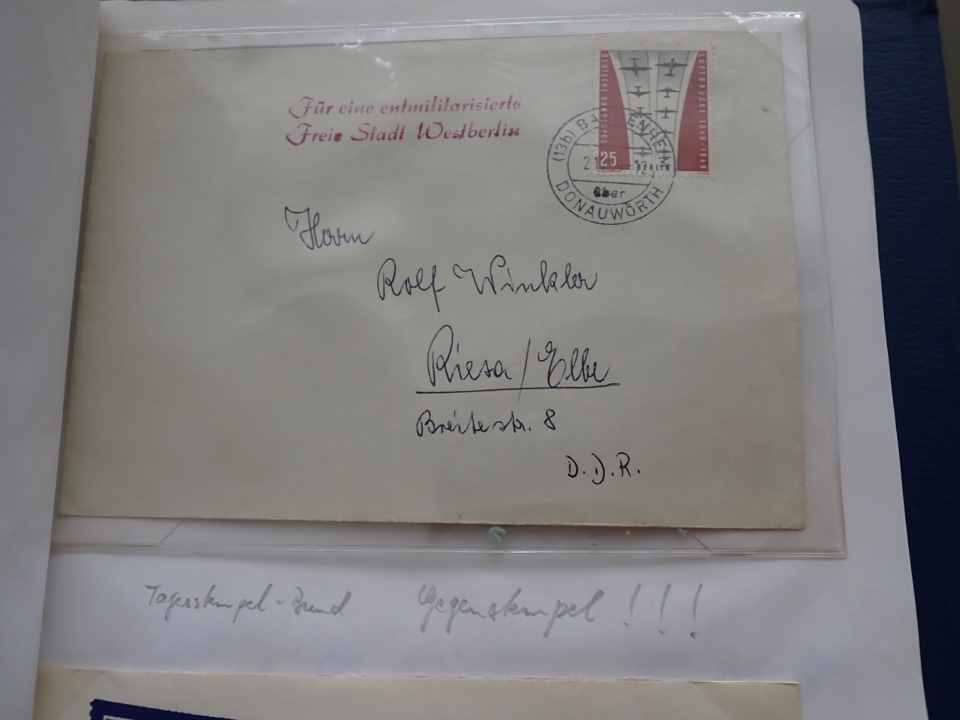 Für eine entmilitarisierte
Freie Stadt Westberlin
25
BERLIN
(13b)
über
DONAUWÖRTH
Herrn
Rolf Winkler
Riesa/Elbe
Breitestr. 8
D.D.R.
Tagesstempel-Bund Gegenstempel !!!